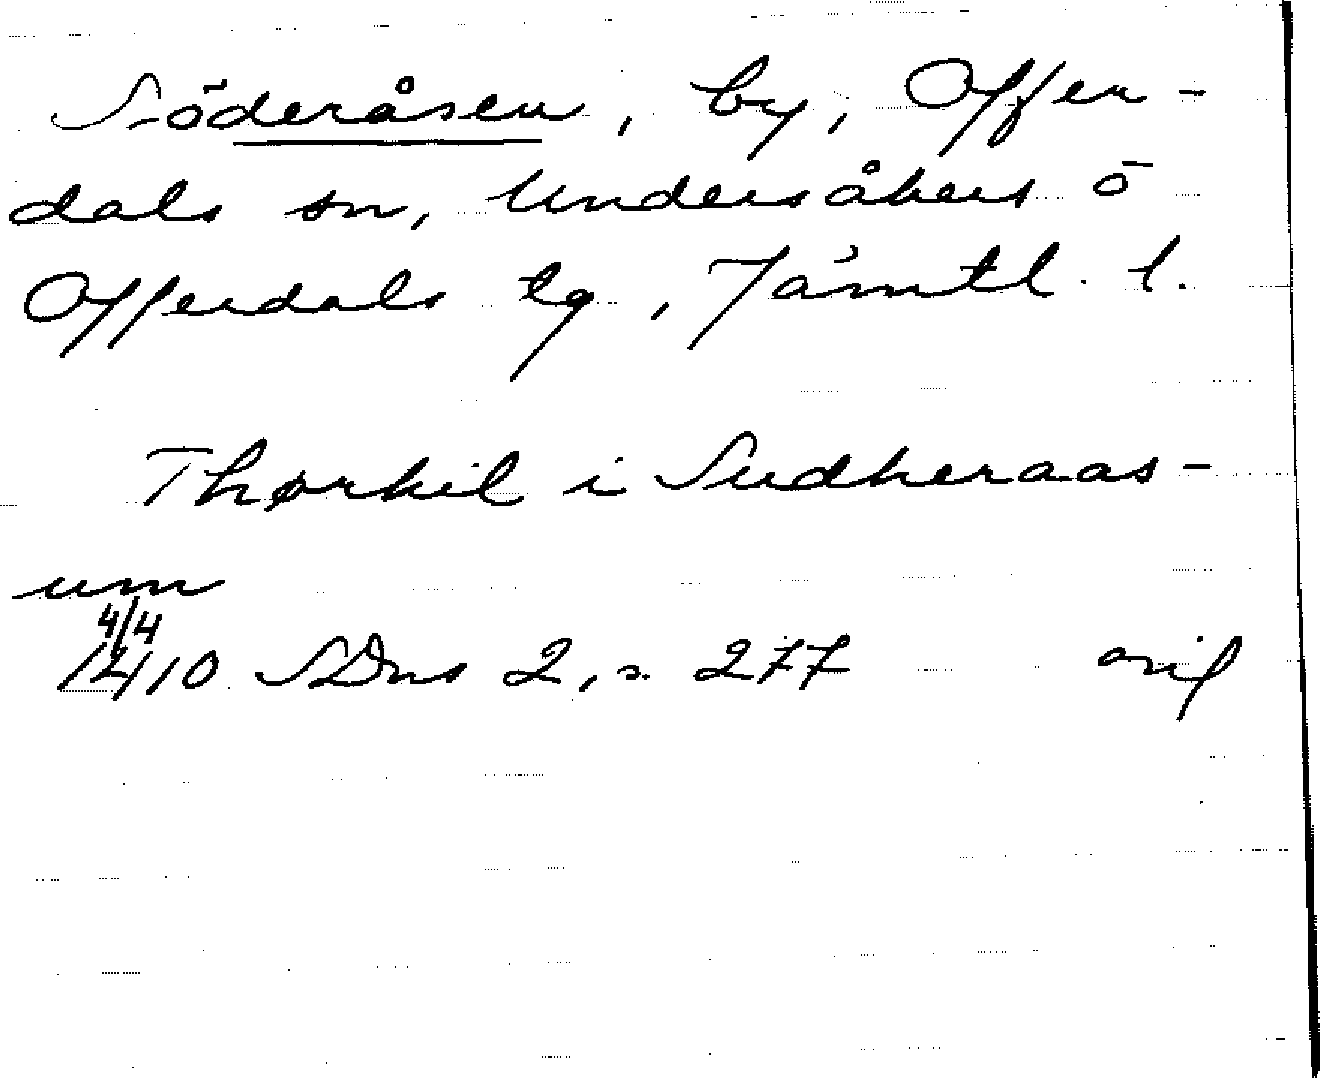 Söderåsen, by, Offer-
dals sn, Undersåkers o
Offerdals tg, Jämtl. l.
Thørkil i Sudheraas-
um
4/4
1410 SDns 2, s. 277 orig